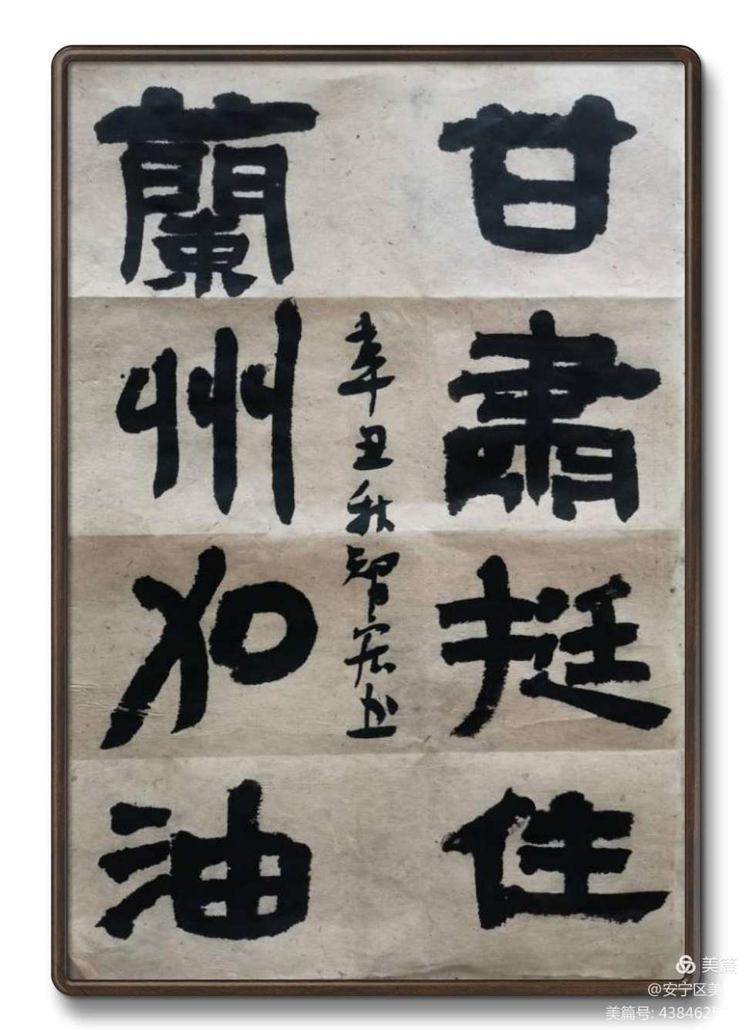 甘肅挺住
蘭州加油
辛丑秋智宏书
美篇
@安宁区美
美篇号: 438462